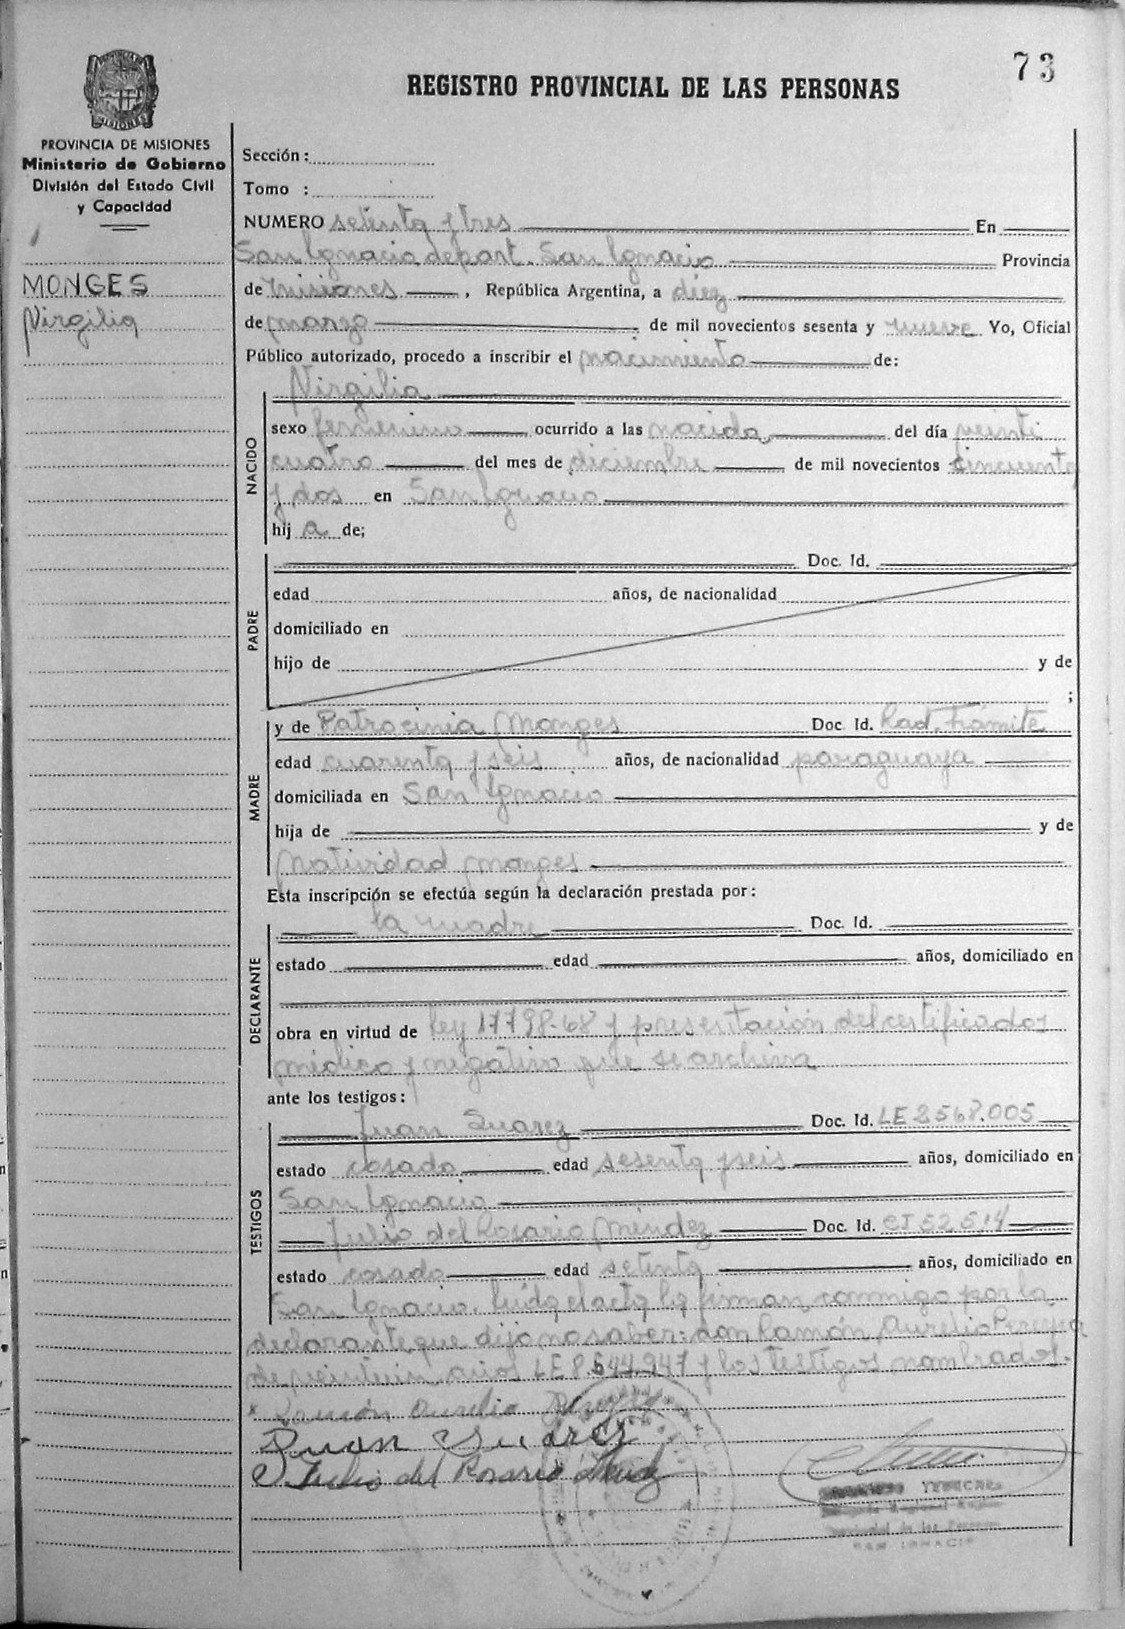 73
REGISTRO PROVINCIAL DE LAS PERSONAS
PROVINCIA DE MISIONES
Ministerio de Gobierno
División del Estado Civil
y Capacidad
MONGES
Virgilia
Sección:
Tomo :
NUMERO setenta y tres En
San Ignacio depart. San Ignacio Provincia
de Misiones , República Argentina, a diez
de marzo de mil novecientos sesenta y nueve Yo, Oficial
Público autorizado, procedo a inscribir el nacimiento de:
Virgilia
NACIDO
sexo femenino ocurrido a las nacida del día veinti
cuatro del mes de diciembre de mil novecientos cincuenta
y dos en San Ignacio
hij a de;
PADRE
Doc. Id.
edad años, de nacionalidad
domiciliado en
hijo de y de
;
MADRE
y de Patrocinia Monges Doc. Id. Rad. Trámite
edad cuarenta y seis años, de nacionalidad paraguaya
domiciliada en San Ignacio
hija de y de
Natividad Monges
Esta inscripción se efectúa según la declaración prestada por:
DECLARANTE
la madre Doc. Id.
estado edad años, domiciliado en
obra en virtud de ley 17798-68 y presentación del certificados
médico y negativo que se archiva
ante los testigos:
TESTIGOS
Juan Suarez Doc. Id. LE 2568.005
estado casado edad sesenta y seis años, domiciliado en
San Ignacio
Julio del Rosario Méndez Doc. Id. CI 52.514
estado casado edad setenta años, domiciliado en
San Ignacio. Leída el acta la firman conmigo por la
declarante que dijo no saber: don Ramón Aurelio
de veintiun años LE 8.544.947 y los testigos nombrados.
x Ramón Aurelio
Juan Suarez
Julio del Rosario
SAN IGNACIO